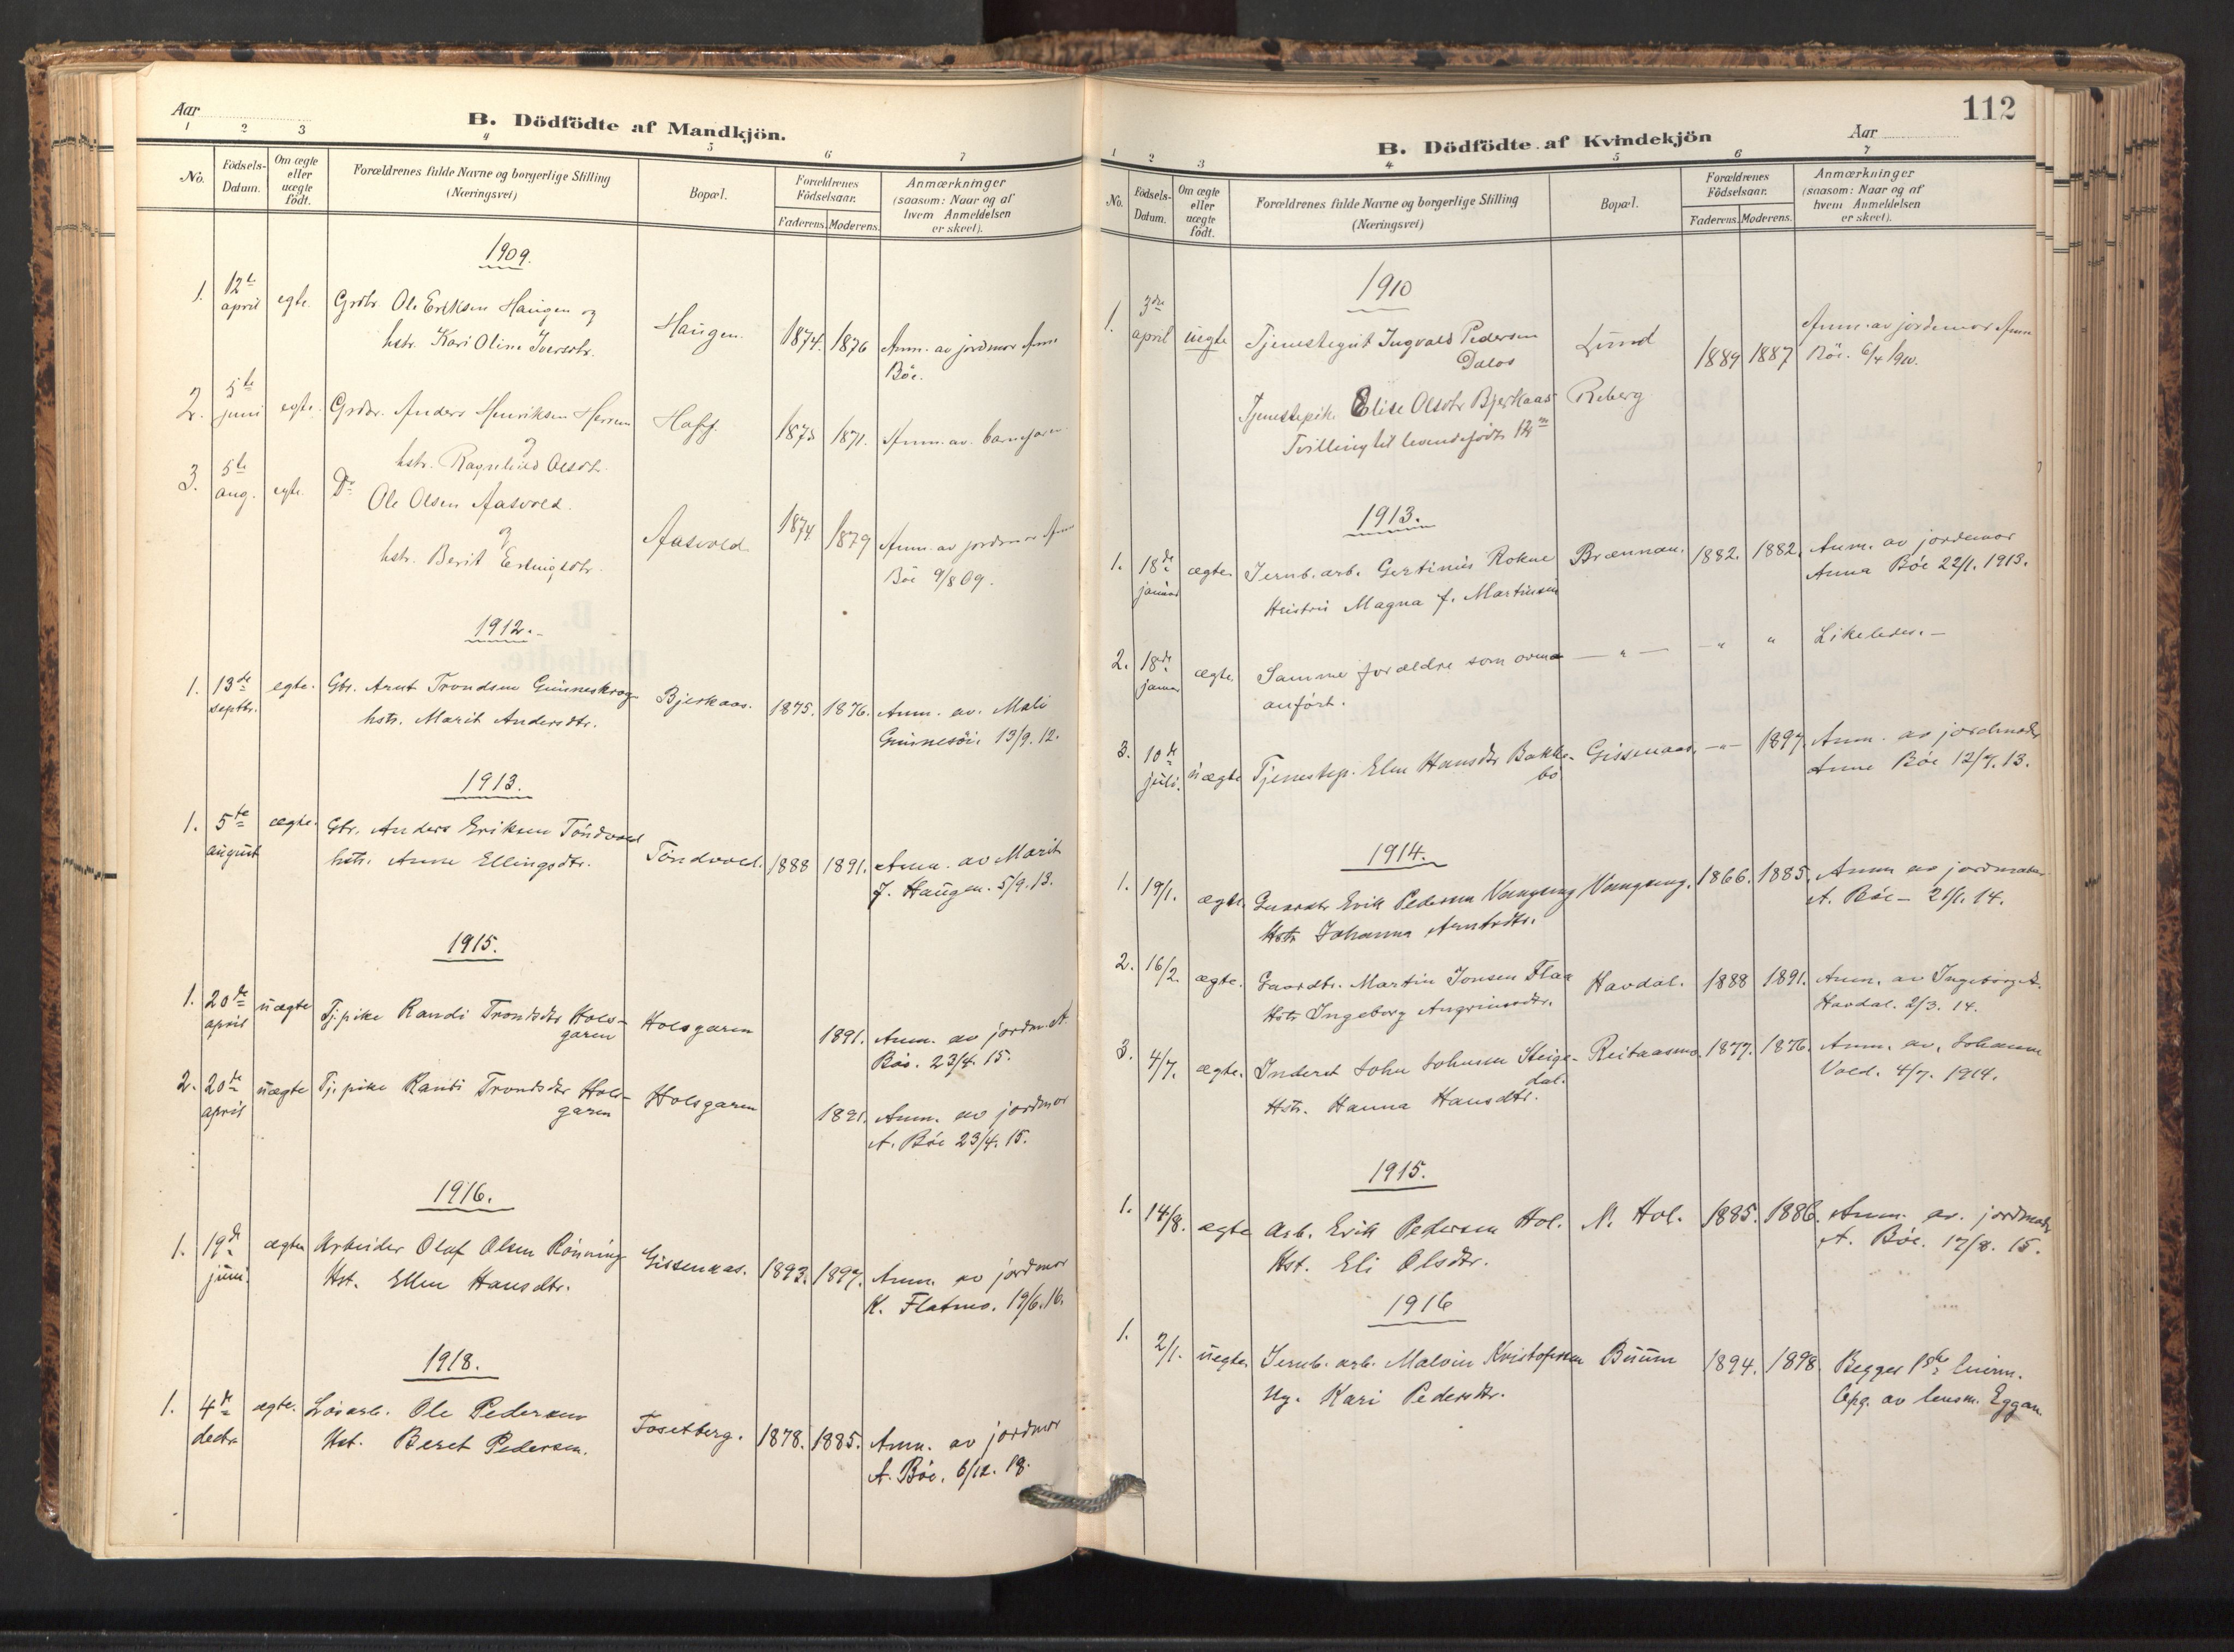 Aar
B. Dödfödte af Mandkjön.
1 2 3 4 5 6 7
No.
Födsels-
Datum.
Om ægte
eller
uægte
födt.
Forældrenes fulde Navne og borgerlige Stilling
(Næringsvei)
Bopæl.
Forældrenes
Födselsaar.
Faderens. Moderens.
Anmærkninger
(saasom: Naar og af
hvem Anmeldelsen
er skeet).
1909.
1. 12te april egte. Grdbr. Ole Eriksen Haugen og Haugen. 1874. 1876 Anm. av jordmor Anne
hstr. Kari Oline Iversdtr. Böe.
2. 5te juni egte. Grdbr. Anders Henriksen Herrem Haff. 1873 1871. Anm. av barnefaren
og
hstr. Ragnhild Olsdtr.
3. 5te aug. egte. Do
Ole Olsen Aasvold. Aasvold. 1874 1879 Anm. av jordmor Anne
og
hstr. Berit Erlingsdtr. Böe 9/8 09.
1912.
1. 13de septbr. egte. Gbr. Arnt Trondsen Gunneskrog Bjerkaas. 1875. 1876. Anm. av. Mali
hstr. Marit Andersdtr. Gunnesöi. 13/9. 12.
1913.
1. 5te august ægte. Gbr. Anders Eriksen Töndvold Töndvold. 1888 1891. Anm. av Marit
hstr. Anne Ellingsdtr. J. Haugen. 5/9. 13.
1915.
1. 20de april uægte Tj.pike Randi Trondsdtr Hols- Holsgaren 1891. Anm. av jordm. A.
garen Böe. 23/4. 15.
2. 20de april uægte Tj.pike Randi Trondsdtr Hols- Holsgaren 1891. Anm. av jordmor
garen A. Böe 23/4. 15.
1916.
1. 19de juni. ægte Arbeider Olaf Olsen Rönning Gissenaas. 1893. 1897. Anm. av jordmor
Hst. Ellen Hansdtr. K. Flatmo. 19/6. 16.
1918.
1. 4de decbr ægte. Lösarb. Ole Pedersen Fosetberg. 1878. 1885. Anm. av jordmor
Hst. Beret Pedersen. A. Böe. 6/12. 18.
112
B. Dödfödte af Kvindekjön
Aar
1 2 3 4 5 6 7
No.
Födsels-
Datum.
Om ægte
eller
uægte
födt.
Forældrenes fulde Navne og borgerlige Stilling
(Næringsvei)
Bopæl.
Forældrenes
Födselsaar.
Faderens. Moderens.
Anmærkninger
(saasom: Naar og af
hvem Anmeldelsen
er skeet).
1910
1. 3die april uegte Tjenestegut Ingvald Pedersen Lund 1889 1887 Anm. av jordemor Anne
Dalos Böe. 6/4 1910.
Tjenestepik. Elise Olsdtr Bjerkaas Reberg
Tvilling til levendefödt
1913.
1. 18de januar ægte. Jernb. arb. Gertinius Rokne Brænnan. 1882. 1882. Anm. av jordemor
Hustru Magna f. Martinsen Anna Böe 22/1. 1913.
2. 18de januar ægte Samme forældre som ovenf — " — — " " Likeledes. —
anfört.
3. 10de juli. uægte Tjenestep. Elen Hansdtr Bakke- Gissenaas. — " — 1897. Anm. av jordmoder
bö Anne Böe 12/7. 13.
1914.
1. 19/1. ægte. Gaardbr Erik Pedersen Vangseng Vangseng. 1866. 1885. Anm av jordmoder
Hstr Johanna Arntsdtr. A. Böe — 21/1. 14.
2. 16/2. ægte. Gaardbr. Martin Jonsen Flaa Havdal. 1888 1891. Anm. av Ingeborg A.
Hstr Ingeborg Angrimsdtr. Havdal. 2/3. 14.
3. 4/7. ægte. Inderst John Johnsen Steige- Reitaasmo. 1877. 1876. Anm. av. Johanna
dal.
Hstr. Hanna Hansdtr. Vold. 4/7. 1914.
1915.
1. 14/8. ægte Arb. Erik Pedersen Hol. N. Hol. 1885. 1886. Anm. av. jordmoder
Hst. Eli Olsdtr. A. Böe. 17/8. 15.
1916
1. 2/1. uegte. Jernb. arb. Malvin Kristofersen Buum 1894. 1898. Begges 1ste
Ug. Kari Pedersdtr. Opg. av lensm. Eggan.